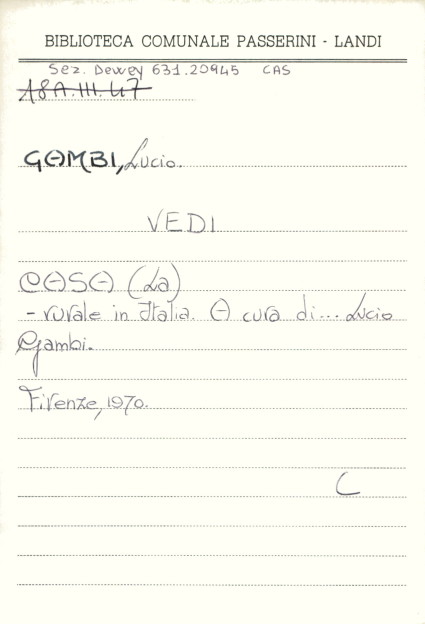 BIBLIOTECA COMUNALE PASSERINI - LANDI
Sez. Dewey 631.20945 CAS
18A.III.47
GAMBI, Lucio.
VEDI
CASA (La)
- rurale in Italia. A cura di... Lucio
Gambi.
Firenze, 1970.
C